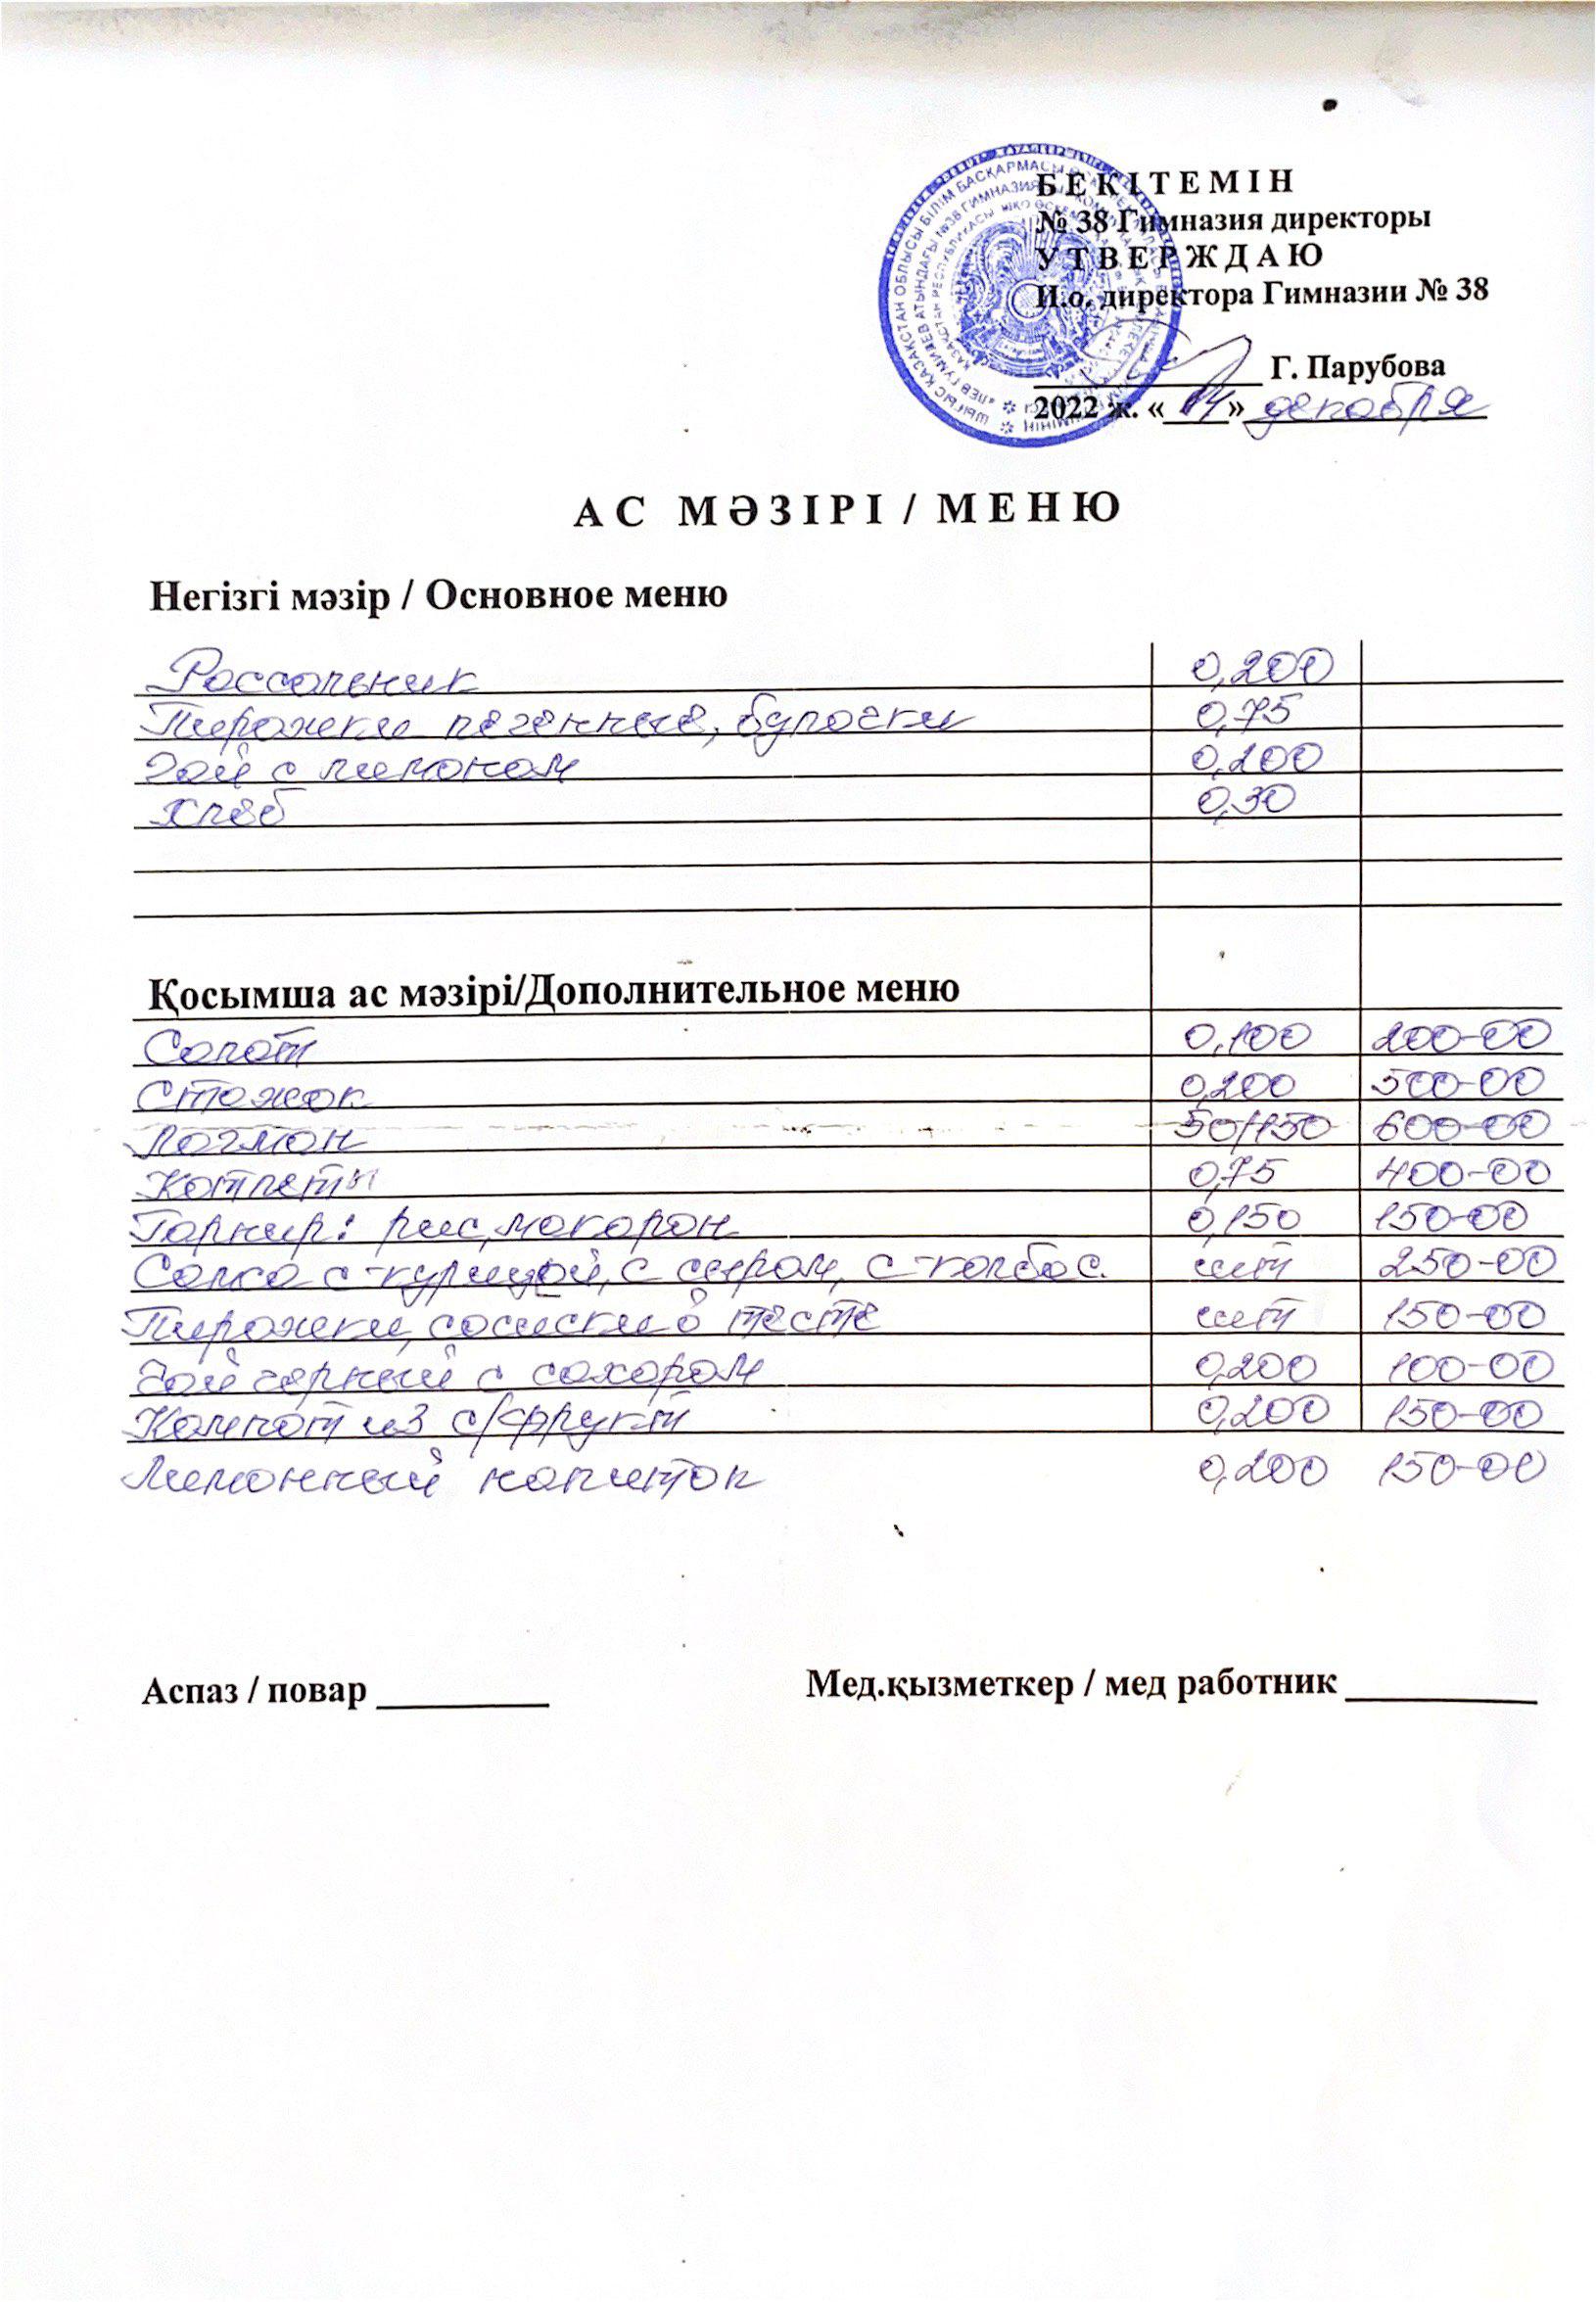 БЕКІТЕМІН
№ 38 Гимназия директоры
УТВЕРЖДАЮ
И.о. директора Гимназии № 38
Г. Парубова
2022 ж. «14» декабря
АС МӘЗІРІ / МЕНЮ
Негізгі мәзір / Основное меню
Россольник 0,200
Пирожки печенные, булочки 0,75
Чай с лимоном 0,200
Хлеб 0,30
Қосымша ас мәзірі/Дополнительное меню
Салат 0,100 200-00
Стожок 0,200 500-00
Лагман 50/150 600-00
Котлеты 0,75 400-00
Гарнир: рис, макарон 0,150 150-00
Самса с курицей, с сыром, с колбас. шт 250-00
Пирожки, сосиски в тесте шт 150-00
Чай черный с сахаром 0,200 100-00
Компот из с/фрукт 0,200 150-00
Лимонный напиток 0,200 150-00
Аспаз / повар Мед.қызметкер / мед работник